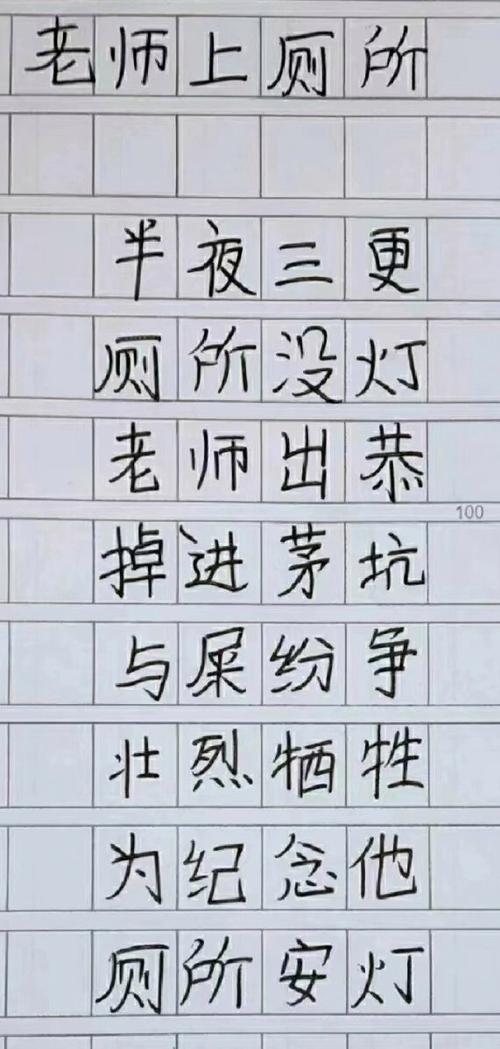 老师上厕所
半夜三更
厕所没灯
老师出恭
掉进茅坑
100
与屎纷争
壮烈牺牲
为纪念他
厕所安灯